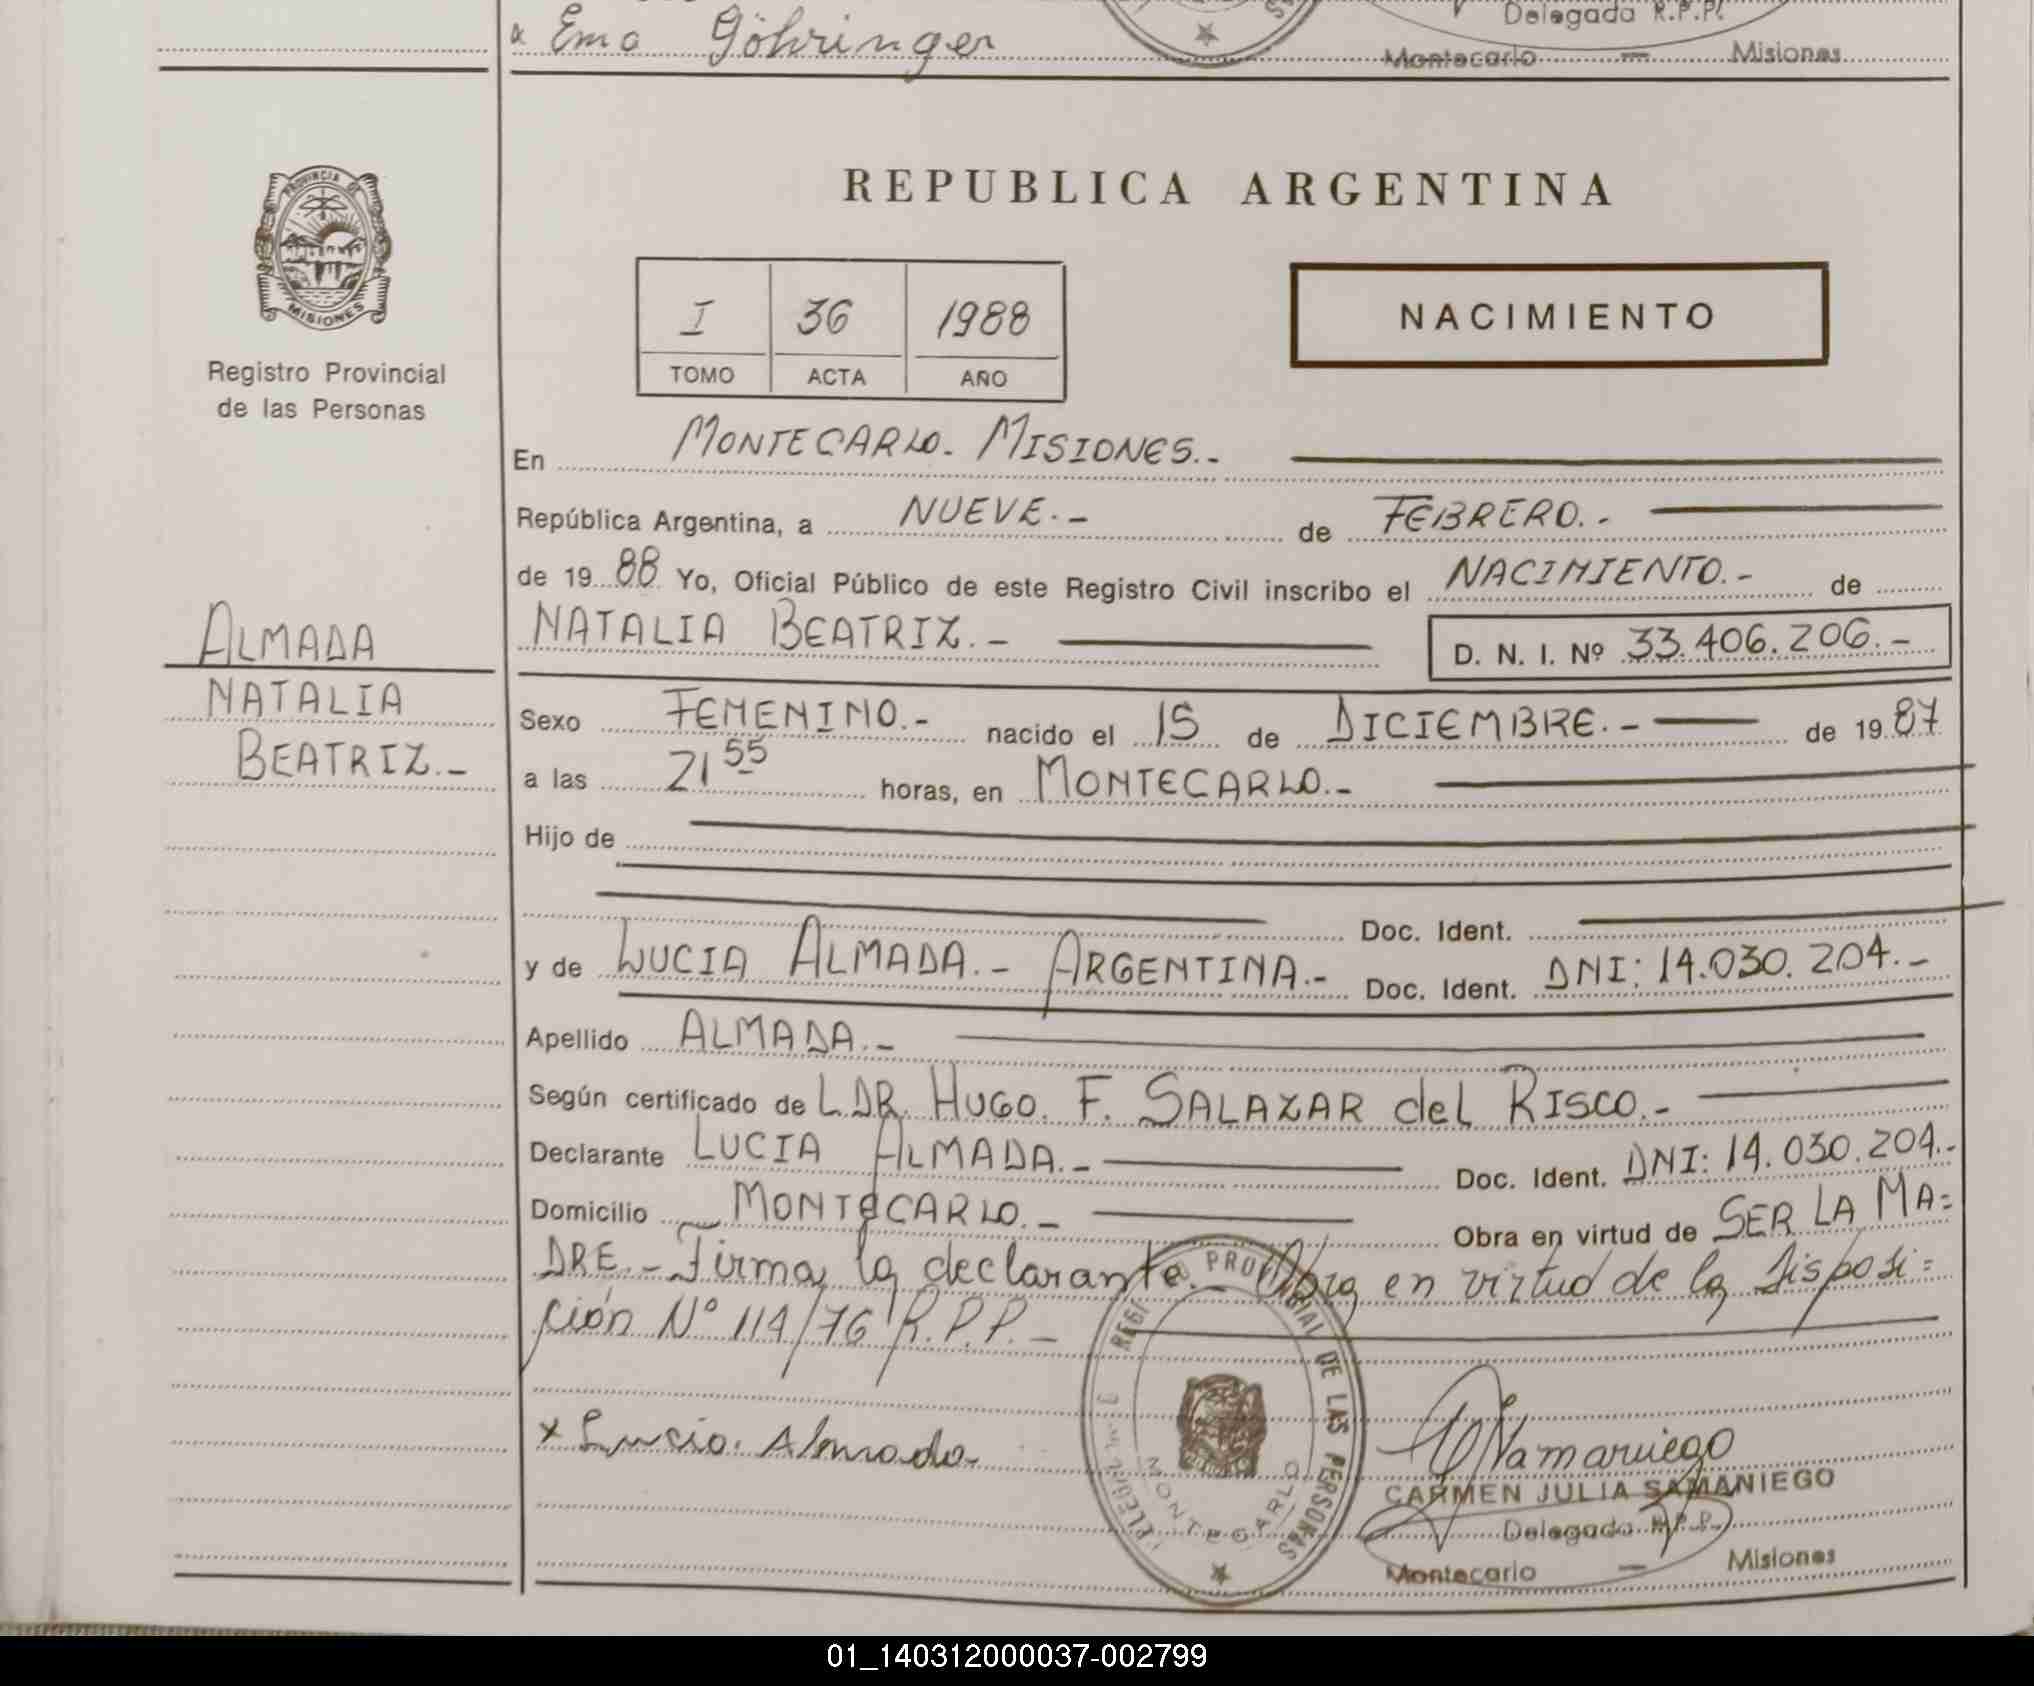 x Ema Göhringer
Delegada R.P.P.
Montecarlo — Misiones
PROVINCIA DE
MISIONES
Registro Provincial
de las Personas
REPUBLICA ARGENTINA
I 36 1988
TOMO ACTA AÑO
NACIMIENTO
En MONTECARLO. MISIONES.-
República Argentina, a NUEVE.- de FEBRERO.-
de 19 88 Yo, Oficial Público de este Registro Civil inscribo el NACIMIENTO.- de
NATALIA BEATRIZ.- D. N. I. Nº 33.406.206.-
ALMADA
NATALIA
BEATRIZ.-
Sexo FEMENINO.- nacido el 15 de DICIEMBRE.- de 19 87
a las 21 55 horas, en MONTECARLO.-
Hijo de
Doc. Ident.
y de LUCIA ALMADA.- ARGENTINA.- Doc. Ident. DNI: 14.030.204.-
Apellido ALMADA.-
Según certificado de L.DR. HUGO. F. SALAZAR del RISCO.-
Declarante LUCIA ALMADA.- Doc. Ident. DNI: 14.030.204.-
Domicilio MONTECARLO.- Obra en virtud de SER LA MA=
DRE.- Firma la declarante.- Obra en virtud de la Disposi=
ción Nº 114/76 R.P.P.-
PROVINCIAL DE LAS PERSONAS
MONTECARLO
x Lucia. Almada.
CARMEN JULIA SAMANIEGO
Delegada R.P.P.
Montecarlo — Misiones
01_140312000037-002799